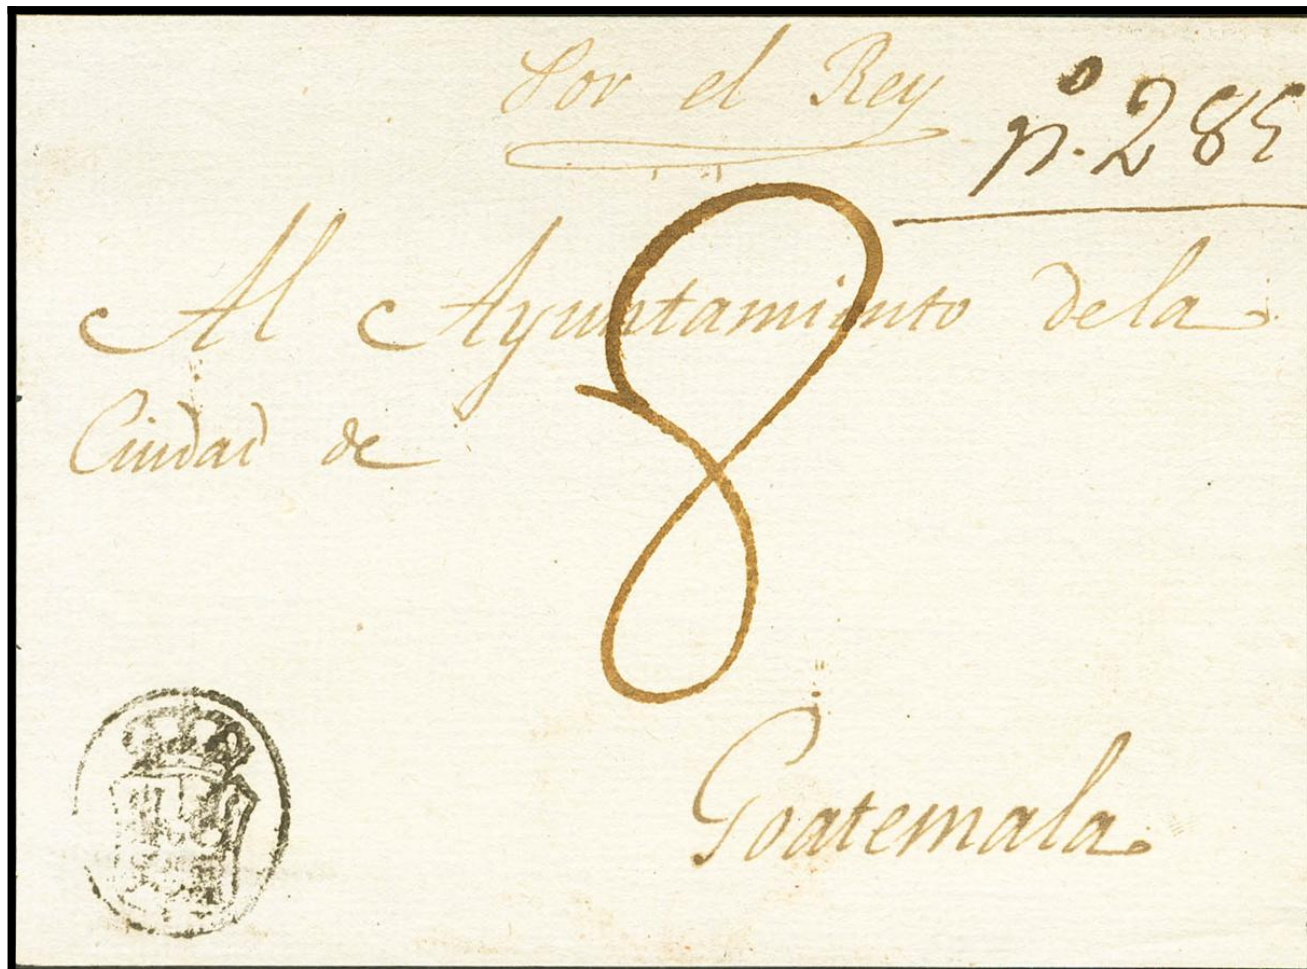 Por el Rey
nº. 285
8
Al Ayuntamiento dela
Ciudad de
Goatemala